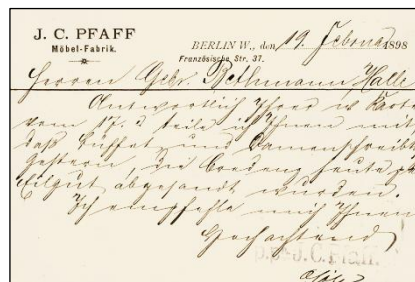 J. C. PFAFF
Möbel-Fabrik.
BERLIN W., den 19. Februar 1898
Französische Str. 37.
Herren Gebr. Bethmann, Halle
Antwortlich Ihrer w. Kart
vom 17. d. teile ich Ihnen mit
daß Büffet und Damenschreibt
gestern, die Credenz heute
Eilgut abgesandt wurden.
Ich empfehle mich Ihnen
Hochachtend
pp. J. C. Pfaff.